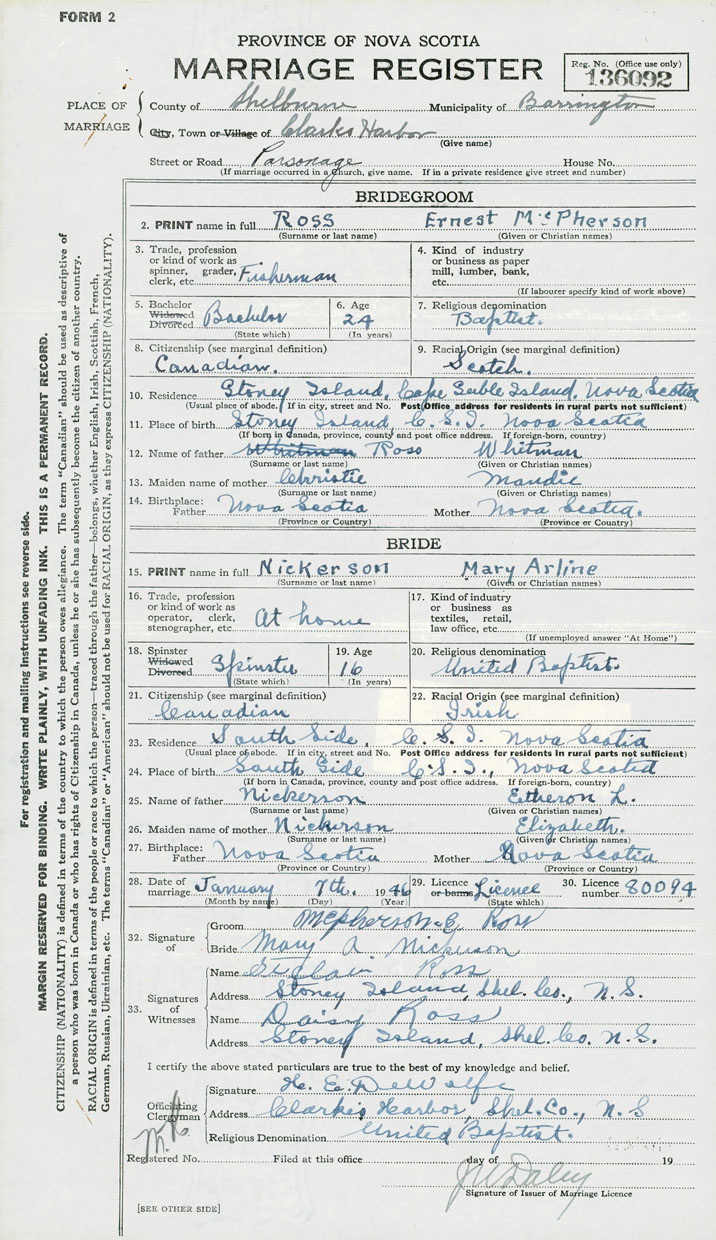 FORM 2
PROVINCE OF NOVA SCOTIA
MARRIAGE REGISTER
Reg. No. (Office use only)
136092
PLACE OF MARRIAGE
County of Shelburne Municipality of Barrington
City, Town or Village of Clarks Harbor
(Give name)
Street or Road Parsonage House No.
(If marriage occurred in a church, give name. If in a private residence give street and number)
BRIDEGROOM
2. PRINT name in full Ross Ernest McPherson
(Surname or last name) (Given or Christian names)
3. Trade, profession or kind of work as spinner, grader, clerk, etc. Fisherman
4. Kind of industry or business as paper mill, lumber, bank, etc.
(If labourer specify kind of work above)
5. Bachelor Widowed Divorced Bachelor
(State which)
6. Age 24
(In years)
7. Religious denomination
Baptist.
8. Citizenship (see marginal definition)
Canadian.
9. Racial Origin (see marginal definition)
Scotch.
10. Residence Stoney Island, Cape Sable Island, Nova Scotia
(Usual place of abode. If in city, street and No. Post Office address for residents in rural parts not sufficient)
11. Place of birth Stoney Island, C.S.I. Nova Scotia
(If born in Canada, province, county and post office address. If foreign-born, country)
12. Name of father Whitman Ross Whitman
(Surname or last name) (Given or Christian names)
13. Maiden name of mother Christie Maudie
(Surname or last name) (Given or Christian names)
14. Birthplace: Father Nova Scotia Mother Nova Scotia.
(Province or Country) (Province or Country)
BRIDE
15. PRINT name in full Nickerson Mary Arline
(Surname or last name) (Given or Christian names)
16. Trade, profession or kind of work as operator, clerk, stenographer, etc. At home
17. Kind of industry or business as textiles, retail, law office, etc.
(If unemployed answer "At Home")
18. Spinster Widowed Divorced Spinster
(State which)
19. Age 16
(In years)
20. Religious denomination
United Baptist.
21. Citizenship (see marginal definition)
Canadian
22. Racial Origin (see marginal definition)
Irish
23. Residence South Side, C.S.I. Nova Scotia
(Usual place of abode. If in city, street and No. Post Office address for residents in rural parts not sufficient)
24. Place of birth South Side C.S.I., Nova Scotia
(If born in Canada, province, county and post office address. If foreign-born, country)
25. Name of father Nickerson Etheron L.
(Surname or last name) (Given or Christian names)
26. Maiden name of mother Nickerson Elizabeth.
(Surname or last name) (Given or Christian names)
27. Birthplace: Father Nova Scotia Mother Nova Scotia
(Province or Country) (Province or Country)
28. Date of marriage January 7th. 1946
(Month by name) (Day) (Year)
29. Licence or banns Licence
(State which)
30. Licence number 80094
32. Signature of
Groom McPherson E Ross
Bride Mary A. Nickerson
33. Signatures of Witnesses
Name St Clair Ross
Address Stoney Island, Shel. Co., N.S.
Name Daisy Ross
Address Stoney Island, Shel. Co. N.S.
I certify the above stated particulars are true to the best of my knowledge and belief.
Officiating Clergyman
Signature H. E. DeWolfe
Address Clark's Harbor, Shel. Co., N.S
Religious Denomination United Baptist.
Registered No. Filed at this office day of 19
J W Daley
Signature of Issuer of Marriage Licence
[SEE OTHER SIDE]
For registration and mailing instructions see reverse side.
MARGIN RESERVED FOR BINDING. WRITE PLAINLY, WITH UNFADING INK. THIS IS A PERMANENT RECORD.
CITIZENSHIP (NATIONALITY) is defined in terms of the country to which the person owes allegiance. The term "Canadian" should be used as descriptive of
a person who was born in Canada or who has rights of Citizenship in Canada, unless he or she has subsequently become the citizen of another country.
RACIAL ORIGIN is defined in terms of the people or race to which the person—traced through the father—belongs, whether English, Irish, Scottish, French,
German, Russian, Ukrainian, etc. The terms "Canadian" or "American" should not be used for RACIAL ORIGIN, as they express CITIZENSHIP (NATIONALITY).